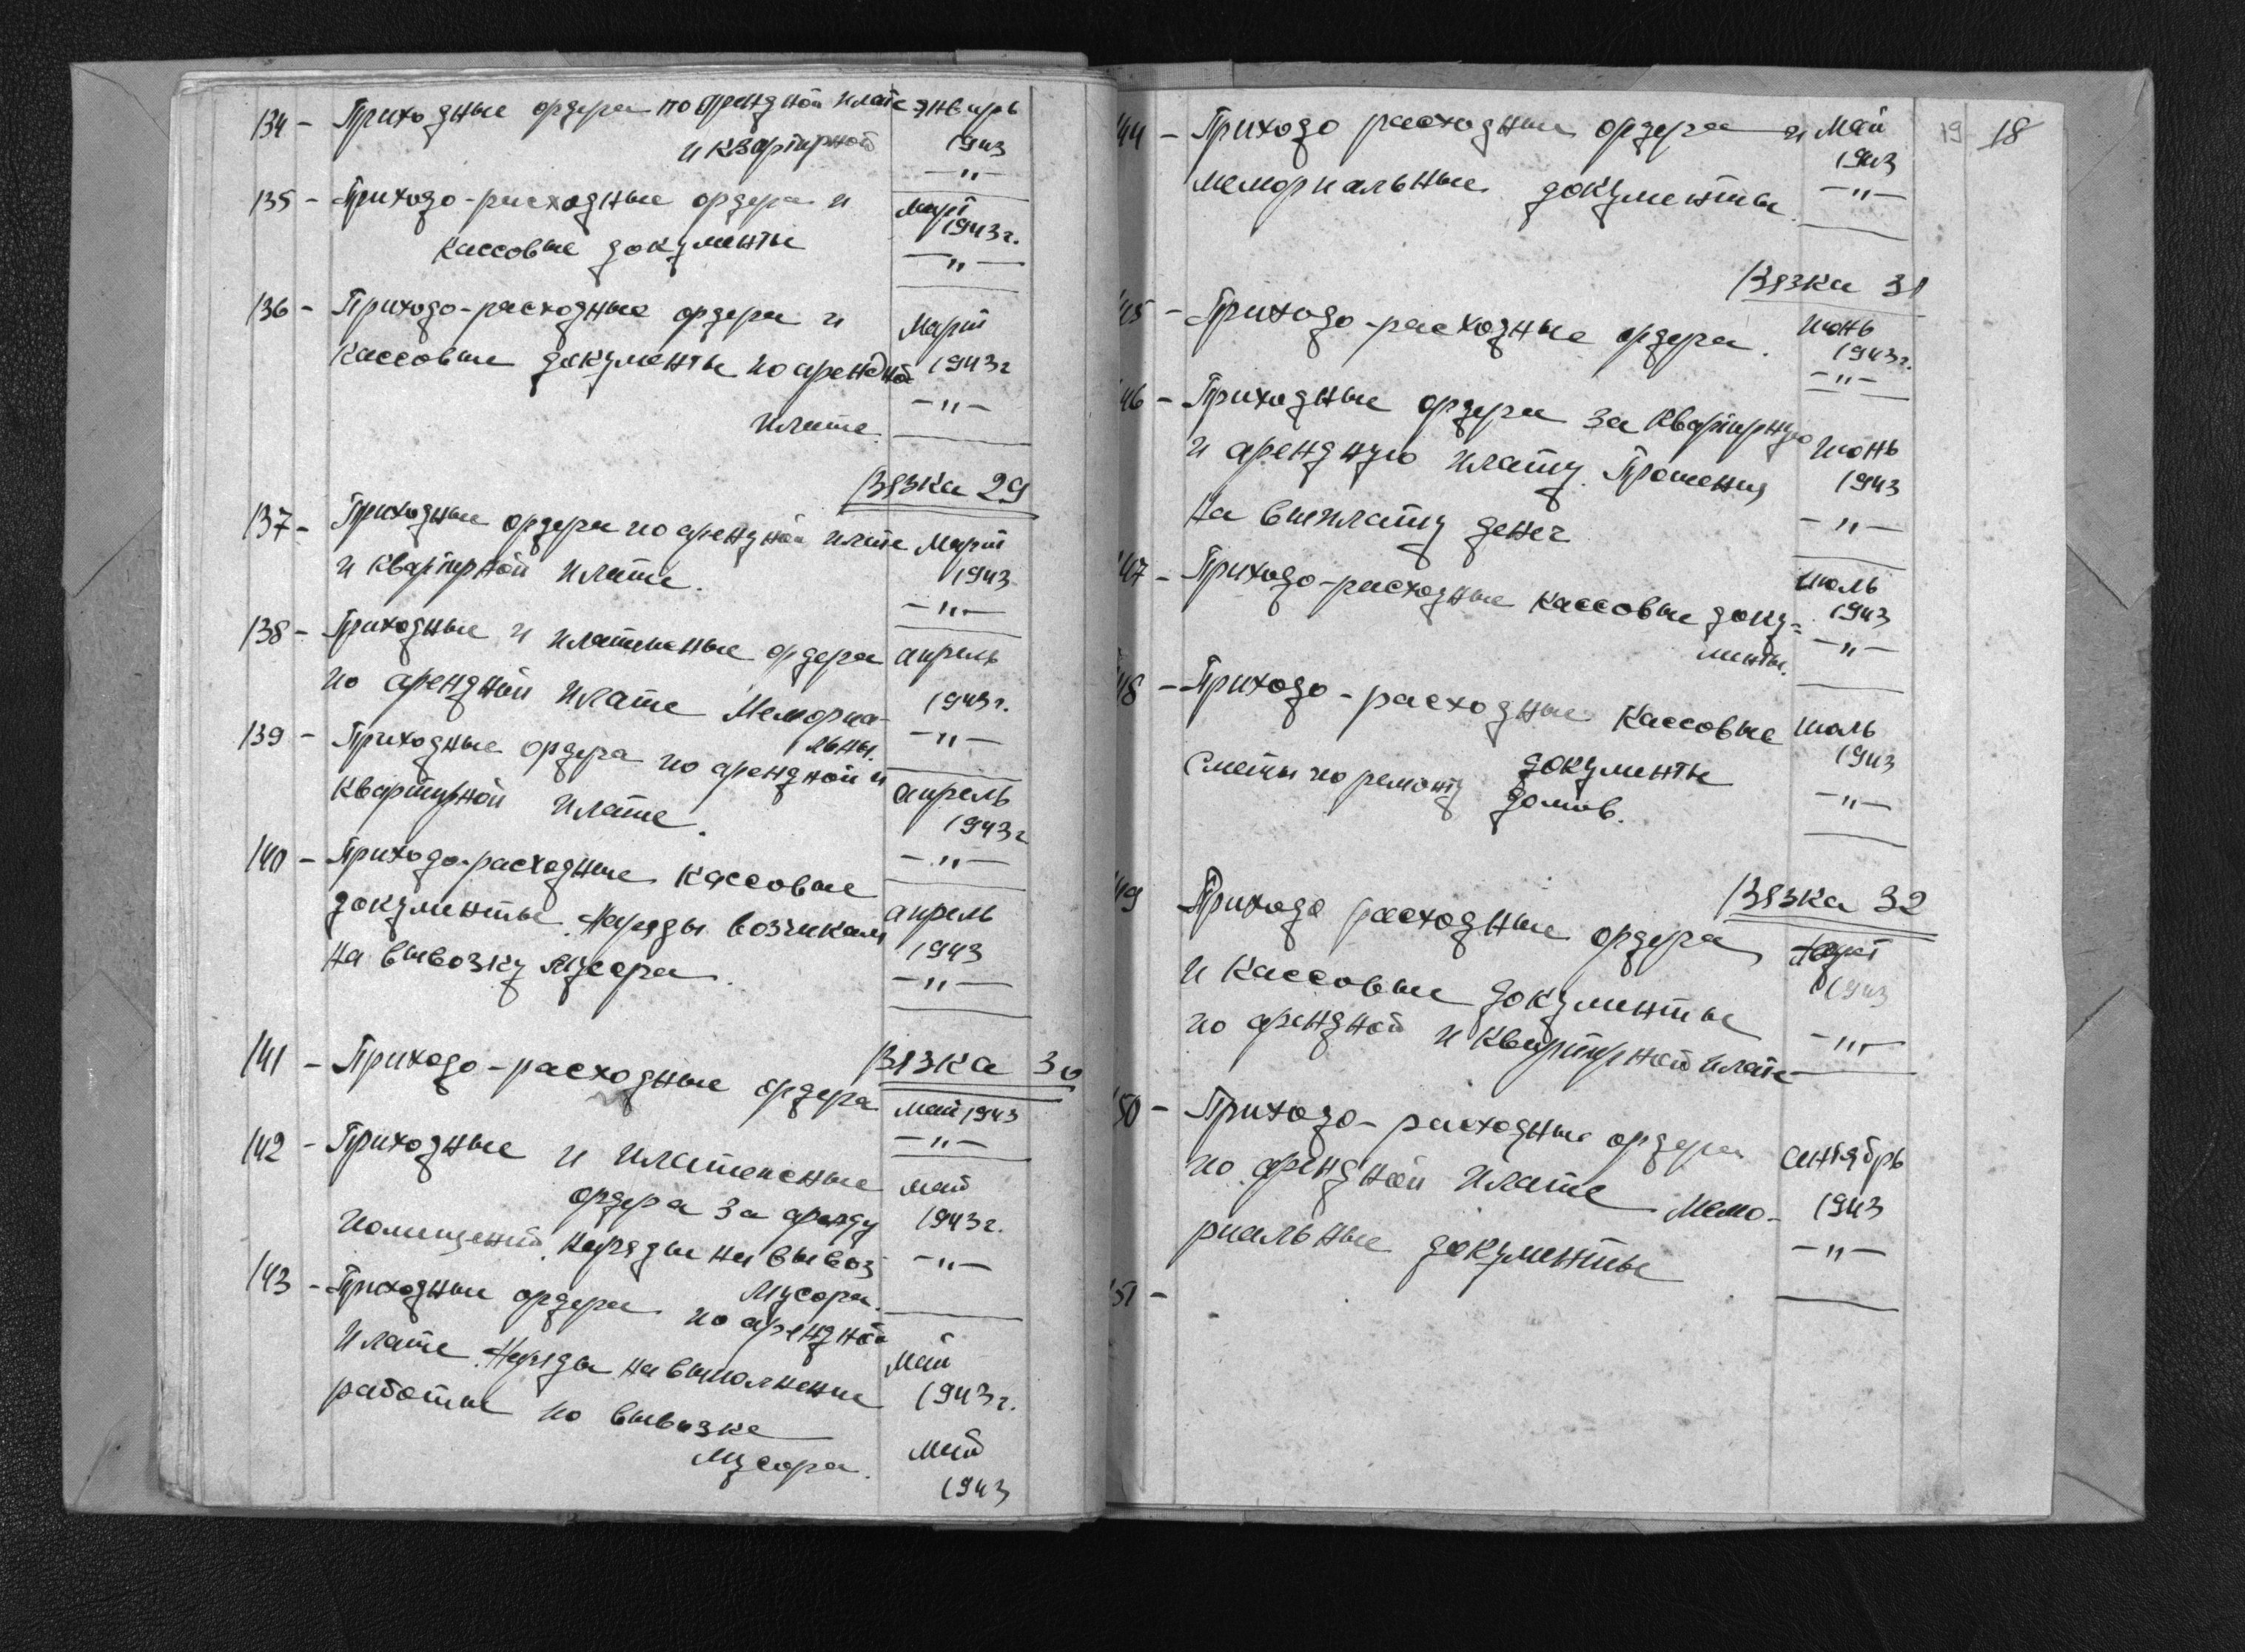 134 - Приходные ордера по арендной плате январь
и квартирной 1943
- " -
135 - Приходо-расходные ордера и март
1943 г.
кассовые документы - " -
136 - Приходо-расходные ордера и Март
кассовые документы по арендной 1943 г
- " -
плате.
Вязка 29
137 - Приходные ордера по арендной плате Март
и квартирной плате. 1943
- " -
138 - Приходные и платежные ордера апрель
по арендной плате Мемориа- 1943 г.
льны. - " -
139 - Приходные ордера по арендной и
квартирной плате. апрель
1943 г
- " -
140 - Приходо-расходные кассовые
документы. Наряды возчикам апрель
на вывозку мусора. 1943
- " -
Вязка 30
141 - Приходо-расходные ордера май 1943
- " -
142 - Приходные и платежные май
ордера за аренду 1943 г.
помещений. Наряды на вывоз - " -
мусора.
143 - Приходные ордера по арендной
плате. Наряды на выполнение май
1943 г.
работы по вывозке
мусора. май
1943
19 18
44 - Приходо расходные ордера и Май
1943
мемориальные документы. - " -
Вязка 31
45 - Приходо-расходные ордера. июнь
1943 г.
- " -
46 - Приходные ордера за квартирную
и арендную плату. Прошения июнь
1943
на выплату денег - " -
47 - Приходо-расходные кассовые доку= июль
1943
менты. - " -
48 - Приходо-расходные кассовые июль
документы 1943
Сметы по ремонту домов. - " -
Вязка 32
49 Приходо расходные ордера
и кассовые документы 1943
по арендной и квартирной плате - " -
50 - Приходо-расходные ордера
по арендной плате Мемо- сентябрь
1943
риальные документы - " -
51 -